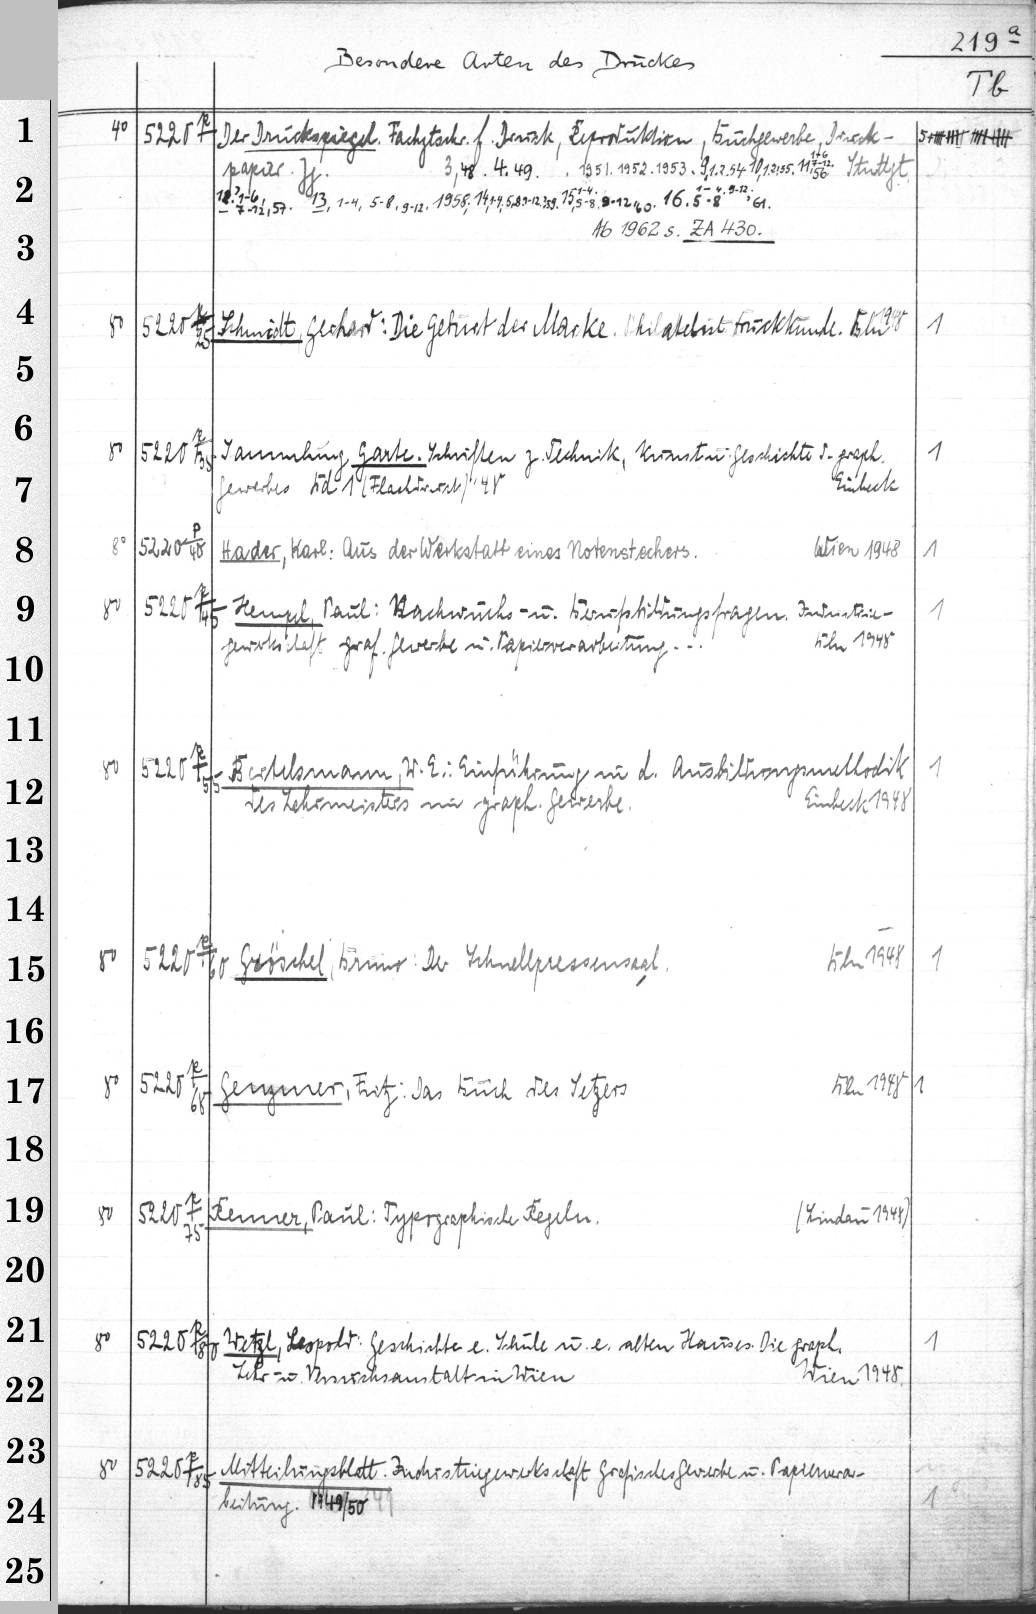 219a
Besondere Arten des Druckes
Tb
1 4o 5220 p Der Druckspiegel. Fachztschr. f. Druck, Reproduktion, Buchgewerbe, Druck-
papier. Jg. 3,48. 4.49. 1951.1952.1953. 9,1.2.54 10,1.2,55. 11, 56 Stuttgt.
2 12, 1-6, 7-12,57. 13, 1-4, 5-8, 9-12. 1958, 60. 16. 5-8 61.
3 Ab 1962 s. ZA 430.
4 8o 5220 p/25 Schmidt, Gerhard: Die Geburt der Marke. Philatelist. Druckkunde. Bln 1948 1
5
6 8o 5220 p/35 Sammlung Garte. Schriften z. Technik, Kunst u. Geschichte d. graph. 1
7 Gewerbes Bd 1 (Flachdruck) '48 Einbeck
8 8o 5220 p/40 Hader, Karl: Aus der Werkstatt eines Notenstechers. Wien 1948 1
9 8o 5220 p/45 Hempel, Paul: Nachwuchs- u. Berufsbildungsfragen. Industrie- 1
10 gewerkschaft graf. Gewerbe u. Papierverarbeitung... Bln 1948
11
12 8o 5220 p/55 Bertelsmann, W. E.: Einführung in d. Ausbildungsmethodik 1
des Lehrmeisters im graph. Gewerbe. Einbeck 1948
13
14
15 8o 5220 p/60 Gröschel, Bruno: Der Schnellpressensaal. Bln 1948 1
16
17 8o 5220 p/68 Genzmer, Fritz: Das Buch des Setzers Bln 1948 1
18
19 8o 5220 p/75 Renner, Paul: Typographische Regeln. (Lindau 1948)
20
21 8o 5220 p/80 Wetzl, Leopold: Geschichte e. Schule u. e. alten Hauses. Die graph. 1
22 Lehr- u. Versuchsanstalt in Wien Wien 1948.
23 8o 5220 p/85 Mitteilungsblatt. Industriegewerkschaft Grafisches Gewerbe u. Papierverar-
24 beitung. 1949/50 1
25